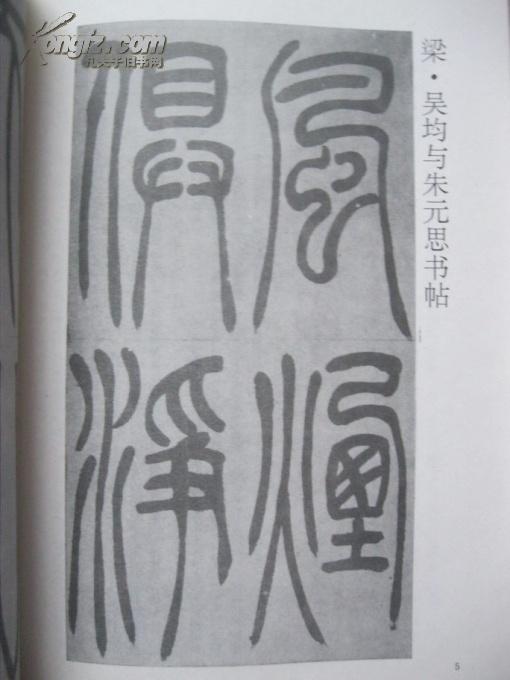 Kongfz.com
孔夫子旧书网
梁·吴均与朱元思书帖
風煙
俱淨
5